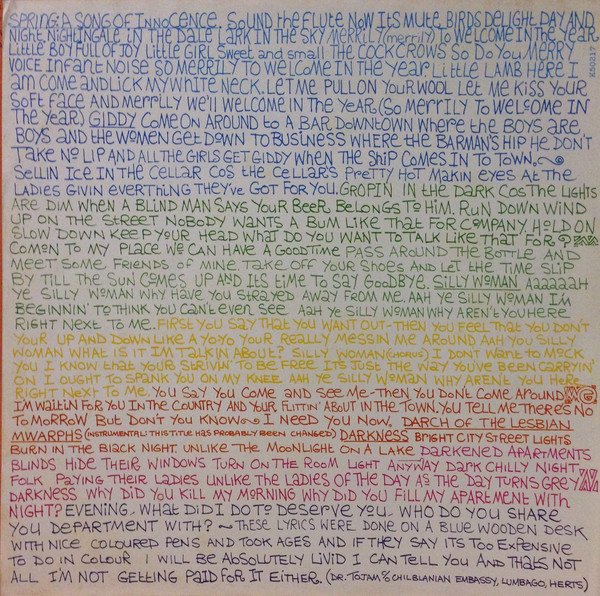 SPRING: A SONG OF INNOCENCE. SOUND the FLUTE NOW ITS MUTE, BIRDS DELIGHT DAY AND
NIGHT, NIGHTINGALE IN THE DALE LARK IN THE SKY MERRILY (merrily) TO WELCOME IN THE YEAR
LITTLE BOY FULL OF JOY LITTLE GIRL SWEET and small THE COCK CROWS SO DO YOU, MERRY
VOICE INFANT NOISE SO MERRILY TO WELCOME IN THE YEAR. LITTLE LAMB HERE I
AM COME AND LICK MY WHITE NECK. LET ME PULL ON YOUR WOOL LET ME KISS YOUR
SOFT FACE AND MERRILY WE'LL WELCOME IN THE YEAR, (SO MERRILY TO WELCOME IN
THE YEAR) GIDDY COME ON AROUND TO A BAR DOWNTOWN WHERE THE BOYS ARE
BOYS AND THE WOMEN GET DOWN TO BUSINESS WHERE THE BARMAN'S HIP HE DON'T
TAKE NO LIP AND ALL THE GIRLS GET GIDDY WHEN THE SHIP COMES IN TO TOWN.
SELLIN ICE IN THE CELLAR COS THE CELLAR'S PRETTY HOT MAKIN EYES AT THE
LADIES GIVIN EVERTHING THEY'VE GOT FOR YOU. GROPIN IN THE DARK COS THE LIGHTS
ARE DIM WHEN A BLIND MAN SAYS YOUR BEER BELONGS TO HIM. RUN DOWN WIND
UP ON THE STREET NOBODY WANTS A BUM LIKE THAT FOR COMPANY. HOLD ON
SLOW DOWN KEEP YOUR HEAD WHAT DO YOU WANT TO TALK LIKE THAT FOR?
COMON TO MY PLACE WE CAN HAVE A GOODTIME PASS AROUND THE BOTTLE AND
MEET SOME FRIENDS OF MINE. TAKE OFF YOUR SHOES AND LET THE TIME SLIP
BY TILL THE SUN COMES UP AND ITS TIME TO SAY GOODBYE. SILLY WOMAN AAAAAAH
YE SILLY WOMAN WHY HAVE YOU STRAYED AWAY FROM ME. AAH YE SILLY WOMAN I'M
BEGINNIN' TO THINK YOU CAN'T EVER SEE AAH YE SILLY WOMAN WHY AREN'T YOU HERE
RIGHT NEXT TO ME. FIRST YOU SAY THAT YOU WANT OUT - THEN YOU FEEL THAT YOU DON'T
YOUR UP AND DOWN LIKE A YOYO YOUR REALLY MESSIN ME AROUND AAH YOU SILLY
WOMAN WHAT IS IT I'M TALKIN ABOUT? SILLY WOMAN (CHORUS) I DONT WANT TO MOCK
YOU I KNOW THAT YOUR STRIVIN' TO BE FREE ITS JUST THE WAY YOU'VE BEEN CARRYIN'
ON I OUGHT TO SPANK YOU ON MY KNEE AAH YE SILLY WOMAN WHY ARENT YOU HERE
RIGHT NEXT TO ME. YOU SAY YOU COME AND SEE ME - THEN YOU DON'T COME AROUND
I'M WAITIN FOR YOU IN THE COUNTRY AND YOUR FLITTIN' ABOUT IN THE TOWN. YOU TELL ME THERES NO
TOMORROW BUT DON'T YOU KNOW I NEED YOU NOW. DARCH OF THE LESBIAN
MWARPHS (INSTRUMENTAL: THIS TITLE HAS PROBABLY BEEN CHANGED) DARKNESS BRIGHT CITY STREET LIGHTS
BURN IN THE BLACK NIGHT. UNLIKE THE MOONLIGHT ON A LAKE DARKENED APARTMENTS
BLINDS HIDE THEIR WINDOWS TURN ON THE ROOM LIGHT ANYWAY DARK CHILLY NIGHT
FOLK PAYING THEIR LADIES UNLIKE THE LADIES OF THE DAY AS THE DAY TURNS GREY
DARKNESS WHY DID YOU KILL MY MORNING WHY DID YOU FILL MY APARTMENT WITH
NIGHT? EVENING - WHAT DID I DO TO DESERVE YOU. WHO DO YOU SHARE
YOU DEPARTMENT WITH? ~ THESE LYRICS WERE DONE ON A BLUE WOODEN DESK
WITH NICE COLOURED PENS AND TOOK AGES AND IF THEY SAY ITS TOO EXPENSIVE
TO DO IN COLOUR I WILL BE ABSOLUTELY LIVID I CAN TELL YOU AND THATS NOT
ALL I'M NOT GETTING PAID FOR IT EITHER. (DR. TOJAM % CHILBLANIAN EMBASSY, LUMBAGO, HERTS)
K50217